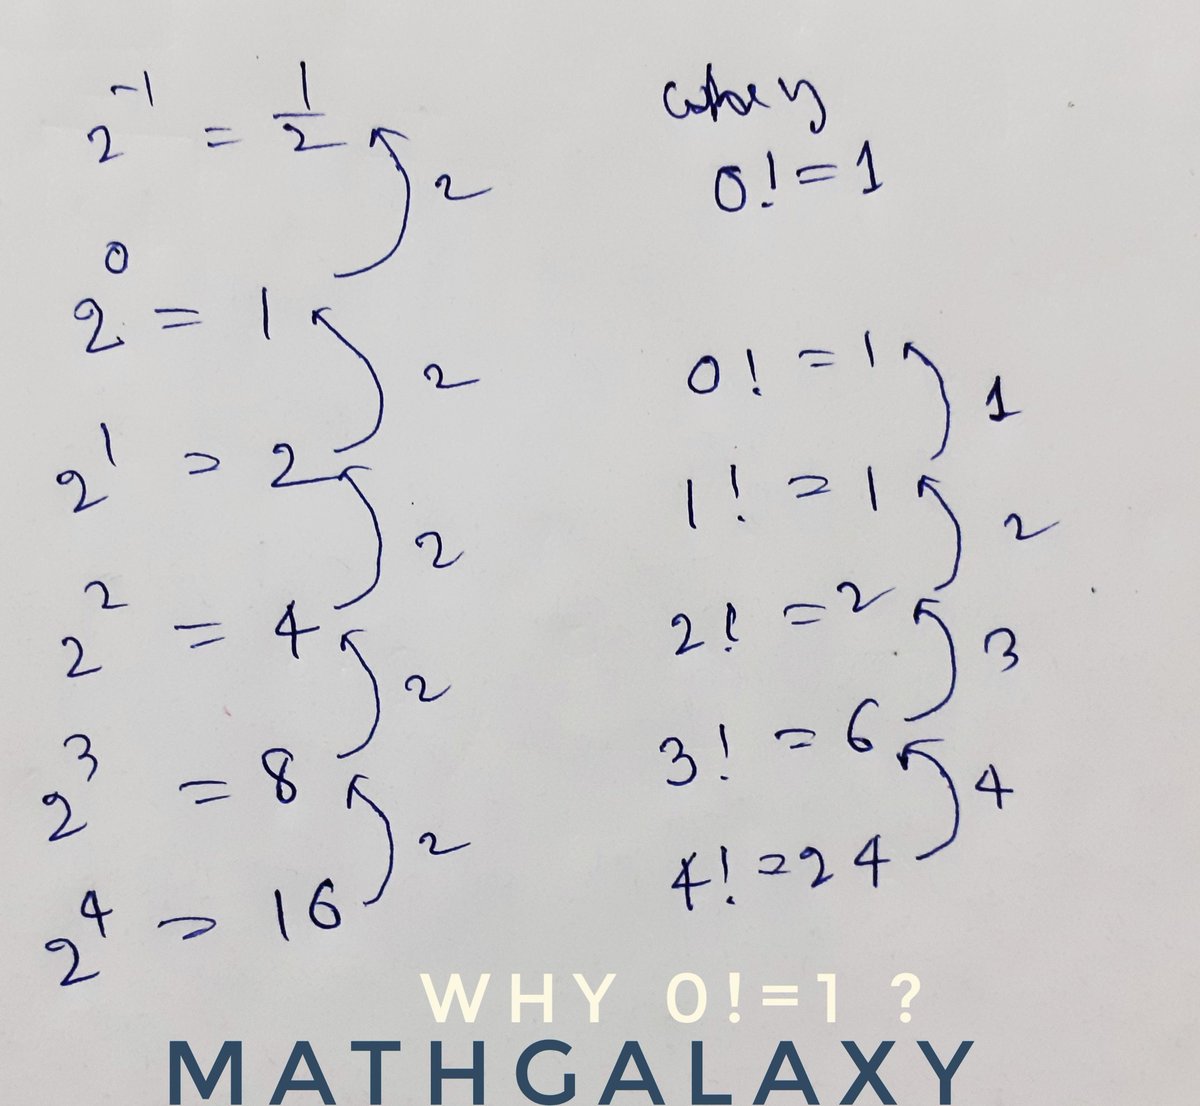 2⁻¹ = 1/2
2
2⁰ = 1
2
2¹ = 2
2
2² = 4
2
2³ = 8
2
2⁴ = 16
0! = 1
0! = 1
1
1! = 1
2
2! = 2
3
3! = 6
4
4! = 24
WHY 0!=1 ?
MATHGALAXY